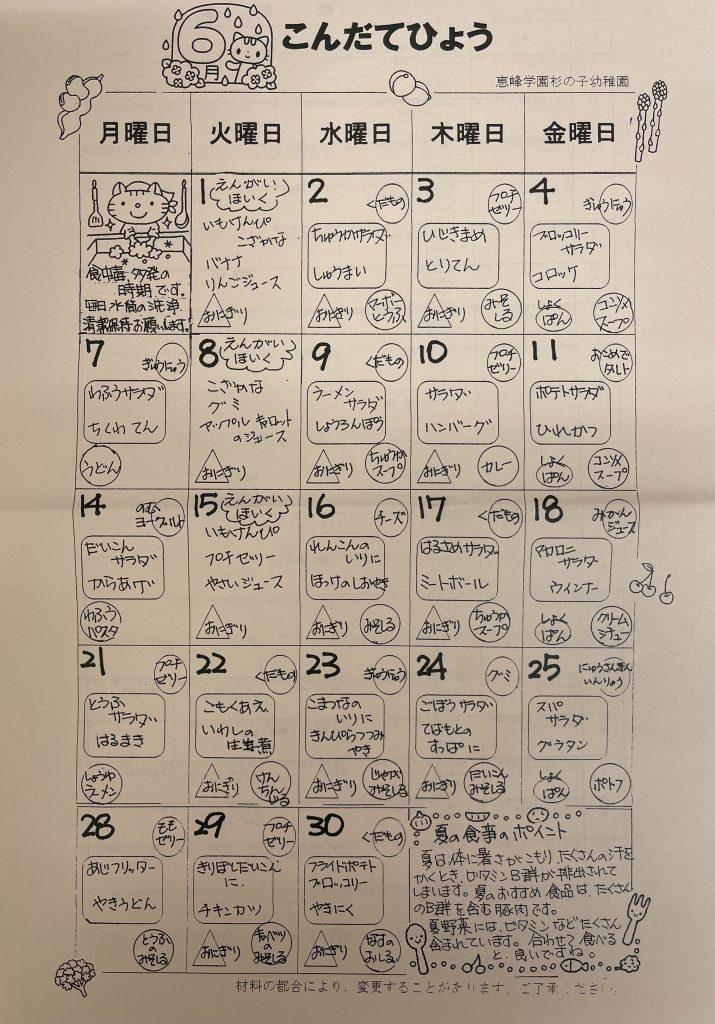 6月
こんだてひょう
恵峰学園杉の子幼稚園
月曜日
火曜日
水曜日
木曜日
金曜日
食中毒、多発の
時期です。
毎日水筒の洗浄、
清潔保持お願いします。
1
えんがい
ほいく
いもけんぴ
こざかな
バナナ
りんごジュース
おにぎり
2
くだもの
ちゅうかサラダ
しゅうまい
おにぎり
マーボー
どうふ
3
プチ
ゼリー
ひじきまめ
とりてん
おにぎり
みそ
しる
4
ぎゅうにゅう
ブロッコリー
サラダ
コロッケ
しょく
ぱん
コンソメ
スープ
7
ぎゅうにゅう
わふうサラダ
ちくわ てん
うどん
8
えんがい
ほいく
こざかな
グミ
アップル キャロット
のジュース
おにぎり
9
くだもの
ラーメン
サラダ
しょうろんぽう
おにぎり
ちゅうか
スープ
10
プチ
ゼリー
サラダ
ハンバーグ
おにぎり
カレー
11
おこめで
タルト
ポテトサラダ
ひれかつ
しょく
ぱん
コンソメ
スープ
14
のむ
ヨーグルト
だいこん
サラダ
からあげ
わふう
パスタ
15
えんがい
ほいく
いもけんぴ
プチゼリー
やさいジュース
おにぎり
16
チーズ
れんこんの
いりに
ほっけのしおやき
おにぎり
みそしる
17
くだもの
はるさめサラダ
ミートボール
おにぎり
ちゅうか
スープ
18
みかん
ジュース
マカロニ
サラダ
ウィンナー
しょく
ぱん
クリーム
シチュー
21
プチ
ゼリー
とうふ
サラダ
はるまき
しょうゆ
ラーメン
22
くだもの
ごもくあえ
いわしの
生姜煮
おにぎり
けん
ちん
じる
23
ぎゅうにゅう
こまつなの
いりに
きんぴらつつみ
やき
おにぎり
じゃがいも
みそしる
24
グミ
ごぼうサラダ
てばもとの
すっぱに
おにぎり
だいこん
みそしる
25
にゅうさんきん
いんりょう
スパ
サラダ
グラタン
しょく
ぱん
ポトフ
28
もも
ゼリー
あじフリッター
やきうどん
とうふ
の
みそしる
29
プチ
ゼリー
きりぼしだいこん
に
チキンカツ
おにぎり
キャベツ
の
みそしる
30
くだもの
フライドポテト
ブロッコリー
やきにく
おにぎり
なすの
おしる
夏の食事のポイント
夏は体に暑さがこもり、たくさんの汗を
かくとき、ビタミンB群が排出されて
しまいます。夏のおすすめ食品は、たくさん
のB群を含む豚肉です。
夏野菜には、ビタミンなどたくさん
含まれています。合わせて食べる
と、良いですね。
材料の都合により、変更することがあります、ご了承ください。